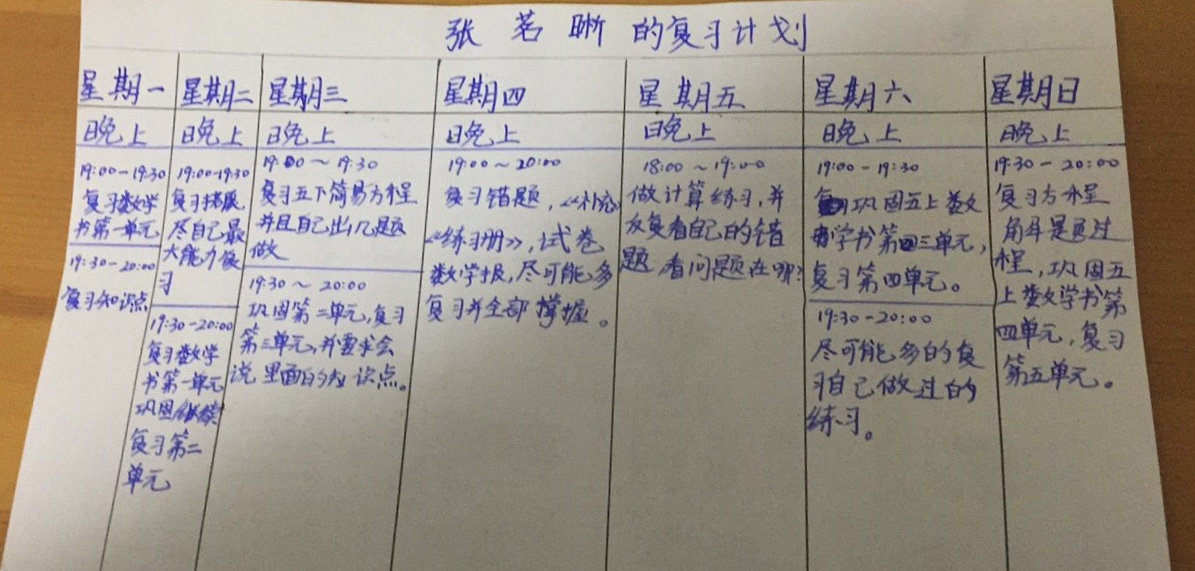 张茗晰的复习计划
星期一 星期二 星期三 星期四 星期五 星期六 星期日
晚上 晚上 晚上 晚上 晚上 晚上 晚上
19:00-19:30
复习数学
书第一单元
19:30-20:00
复习知识点
19:00-19:30
复习拓展
尽自己最
大能力复
习
19:30-20:00
复习数学
书第一单元
巩固继续
复习第二
单元
19:00～19:30
复习五下简易方程
并且自己出几题
做
19:30～20:00
巩固第二单元,复习
第三单元,并要求会
说里面的知识点。
19:00～20:00
复习错题,《补充
《练习册》,试卷
数学报,尽可能多
复习并全部掌握。
18:00～19:00
做计算练习,并
反复看自己的错
题 看问题在哪?
19:00-19:30
巩固五上数
学书第三单元,
复习第四单元。
19:30-20:00
尽可能多的复
习自己做过的
练习。
19:30-20:00
复习方程
解決是通过
程,巩固五
上数学书第
四单元,复习
第五单元。